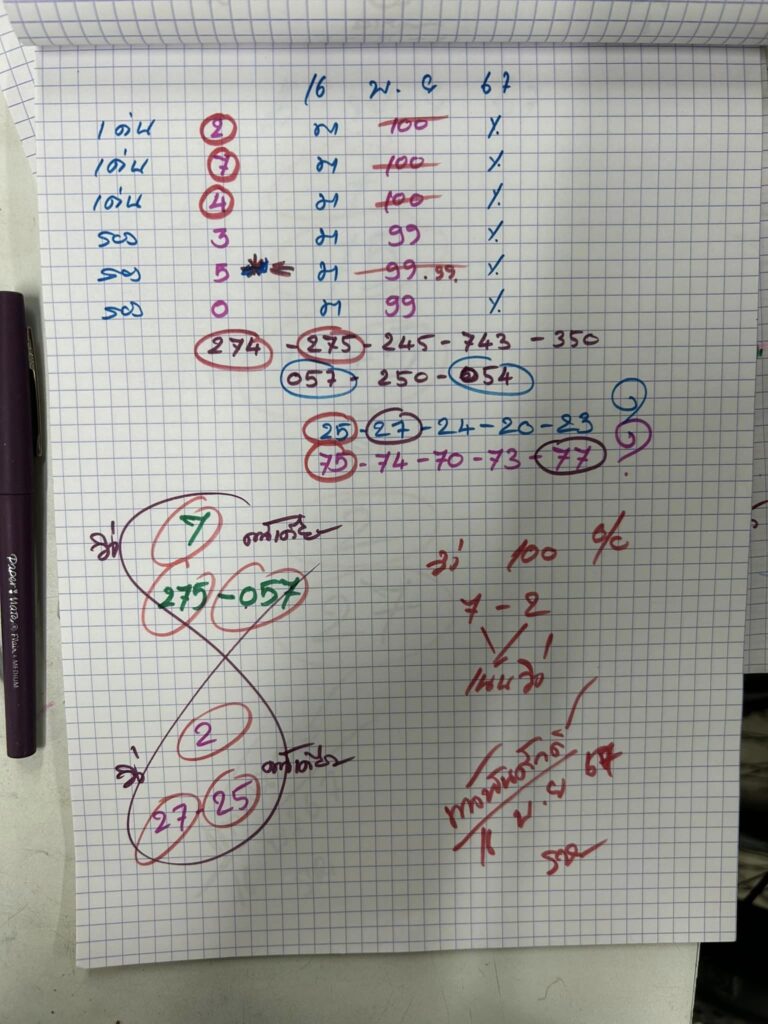 16 พ.ย 67
เด่น 2 มา 100 %
เด่น 7 มา 100 %
เด่น 4 มา 100 %
รอง 3 มา 99 %
รอง 5 มา 99.99 %
รอง 0 มา 99 %
274 - 275 - 245 - 743 - 350
057 - 250 - 054
25 - 27 - 24 - 20 - 23
75 - 74 - 70 - 73 - 77 ?
วิ่ง 7 ตัวเดียว
275 - 057
2
วิ่ง ตัวเดียว
27 - 25
วิ่ง 100 %
7 - 2
เน้นวิ่ง
16 พ.ย 67
รวย
Paper Mate Flair MEDIUM